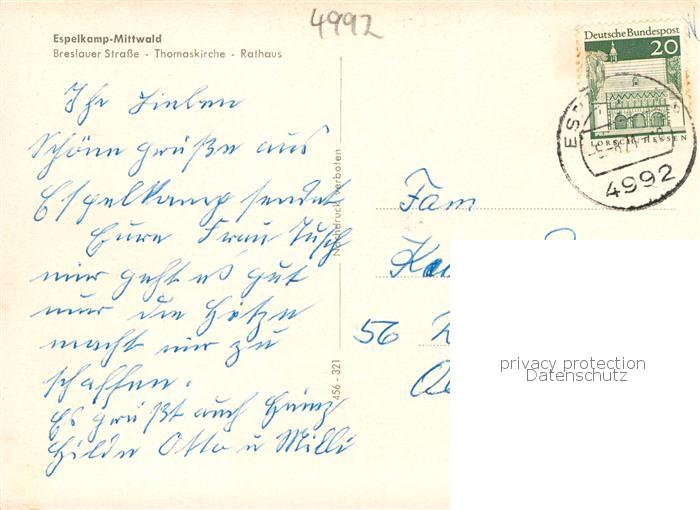 4992
Espelkamp-Mittwald
Breslauer Straße - Thomaskirche - Rathaus
Deutsche Bundespost
20
LORSCH/HESSEN
4992
Ihr Lieben
Schöne Grüße aus
Espelkamp sendet
Eure Frau Tusch
mir geht es gut
nur die Hitze
macht mir zu
schaffen.
Es grüßt auch Heinz
Hilde Otto u Milli
Nachdruck verboten
456 - 321
Fam
56
privacy protection
Datenschutz